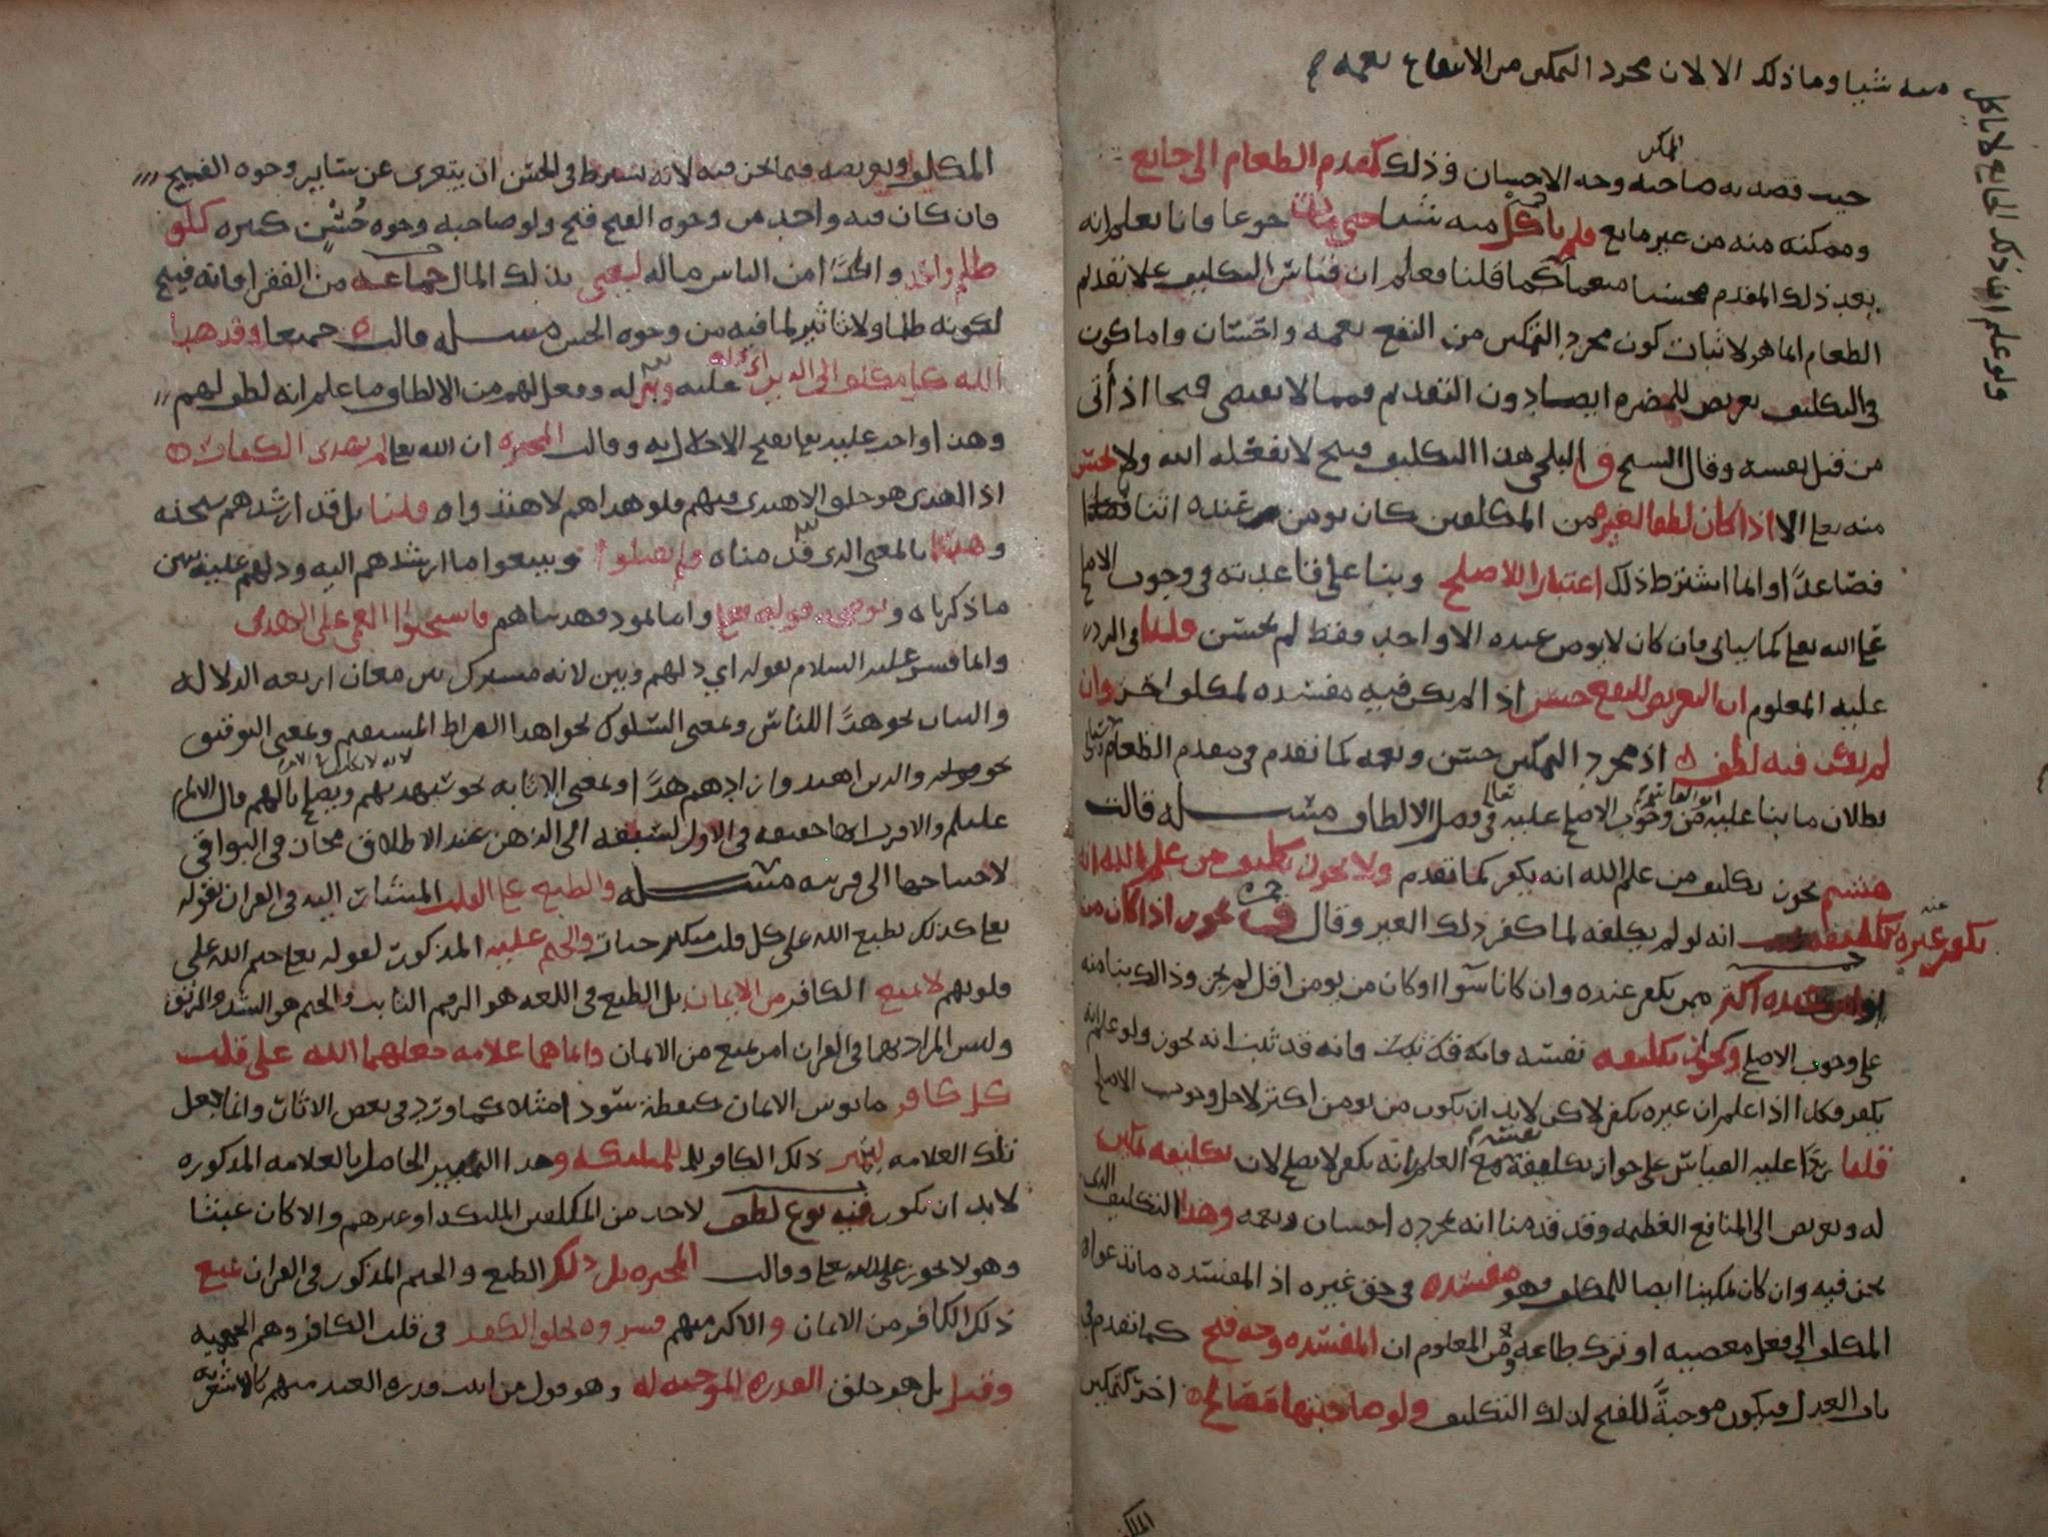 منه شيا وما ذلك الا لان مجرد التمكين من الانتفاع نعمه
ولو علم انفا ذلك الجايع لا ياكل
حيث قصد به صاحبه وجه الاحسان وذلك كمقدم الطعام الى جايع
الممكن
وممكنه منه من غير مانع فلم ياكل منه شيا حتى مات جوعا فانا نعلم انه
بعد ذلك المقدم محسنا منعما كما قلنا فعلم ان قياس التكليف على تقديم
الطعام انما هو لاثبات كون مجرد التمكين من النفع نعمه واحسان واما كون
في التكليف تعريض للمضره ايضا دون التقديم فمما لا يقتضي قبحا اذ أتى
من قبل نفسه وقال الشيخ ق البلخي هذا التكليف قبيح لا يفعله الله ولا يحسن
منه تعالى الا اذا كان لطفا لغيره من المكلفين كان يومن عنده اثنا
فصاعدًا وانما اشترط ذلك اعتبارا للاصلح وبنا على قاعدته في وجوب الاصلح
على الله تعالى كما سياتي فان كان لا يومن عنده الا واحد فقط لم يحسن قلنا في الرد
عليه المعلوم ان التعريض للنفع حسن اذ لم يكن فيه مفسده لمكلف اخر وان
لم يكن فيه لطف اذ مجرد التمكين حسن ونعمه كما تقدم في مقدم الطعام
بطلان ما بنا عليه من وجوب الاصلح عليه تعالى في فصل الالطاف مسـله قالت
هشم يجوز تكليف من علم الله انه يكفر كما تقدم ولا يجوز تكليف من علم الله انه
يكفر غيره عنه تكليفه انه لو لم يكلفه لما كفر ذلك الغير وقال ق يجوز اذا كان من
يومن عنده اكثر ممن يكفر عنده وان كانا سوآ او كان من يومن اقل لم يجز وذلك بنا منه
على وجوب الاصلح وكجواز تكليفه نفسه فانه قد ثبت فانه قد ثبت انه يجوز ولو علم انه
يكفر فكذا اذا علم ان غيره يكفر لاكن لابد ان يكون من يومن اكثر لاجل وجوب الاصلح
قلنا ردًا عليه القياس على جواز تكليفه نفسه مع العلم انه يكفر لا يصلح لان تكليفه تمكين
له وتعريض الى المنافع العظيمه وقد قدمنا انه بمجرده احسان ونعمه وهذا التكليف الذي
نحن فيه وان كان تمكينا ايضا للمكلف فهو مفسده في حق غيره اذ المفسده ما تدعوا
المكلف الى فعل معصيه او ترك طاعه ومن المعلوم ان المفسده وجه قبح كما تقدم في
باب العدل فيكون موجبةً للقبح لذلك التكليف ولو صاحبتها مصالح اخر كتمكين
المكلف
المكلف وتعريضه فيما نحن فيه لانه يشترط في الحسن ان يتعرى عن ساير وجوه القبيح
فان كان فيه واحد من وجوه القبح قبح ولو صاحبه وجوه حُسْن كثيره كلو
ظلم واحد واحدًا من الناس ماله ليغني بذلك المال جماعه من الفقرا فانه قبيح
لكونه ظلما ولا تاثير لما فيه من وجوه الحسن مسـله قالت جميعا وقد هدا
الله كل مكلف الى الدين اي دله عليه وبين له وفعل لهم من الالطاف ما علم انه لطف لهم
وهذا واجب عليه تعالى يقبح الاخلال به وقالت المجبره ان الله تعالى لم يهدى الكفار
اذ الهدى هو خلق الاهتدى فيهم فلو هداهم لاهتدوا قلنا بل قد ارشدهم سبحنه
وهداهم بالمعنى الذي قدمناه فلم يقبلوا ويتبعوا ما ارشدهم اليه ودلهم عليه يبين
ما ذكرناه ويوضحه قوله تعالى واما ثمود فهديناهم فاستحبوا العمى على الهدى
وانما فسر عليه السلام بقوله اي دلهم وبين لانه مشترك بين معان اربعه الدلاله
والبيان نحو هدًا للناس وبمعنى السلوك نحو اهدا الصراط المستقيم وبمعنى التوفيق
نحو قوله والذين اهتدوا زادهم هدًا وبمعنى الاثابه نحو سيهديهم ويصلح بالهم قال الامام
عليلم والاقرب انها حقيقه في الاول لسبقه الى الذهن عند الاطلاق مجاز في البواقي
لاحتياجها الى قرينه مسـله والطبع على القلب المشار اليه في القران بقوله
تعالى كذلك يطبع الله على كل قلب متكبر جبار والختم عليه المذكور لقوله تعالى ختم الله على
قلوبهم لا يمنع الكافر من الايمان بل الطبع في اللغه هو الرقم الثابت والختم هو السد والرتق
وليس المراد بهما في القران امر يمنع من الايمان وانما هما علامه جعلهما الله على قلب
كل كافر مايوس الايمان كنقطة سودا مثلا كما ورد في بعض الاثار وانما جعل
تلك العلامه ليتميز ذلك الكافر للملئكه وهذا التمييز الحاصل بالعلامه المذكوره
لابد ان يكون فيه نوع لطف لاحد من المكلفين الملئكه او غيرهم والا كان عبثا
وهو لا يجوز على الله تعالى وقالت المجبره بل ذلك الطبع والختم المذكور في القران يمنع
ذلك الكافر من الايمان والاكثر منهم فسروه بخلق الكفر في قلب الكافر وهم الجهميه
وقيل بل هو خلق القدره الموجبه له وهو قول من اثبت قدره العبد منهم كالاشعريه